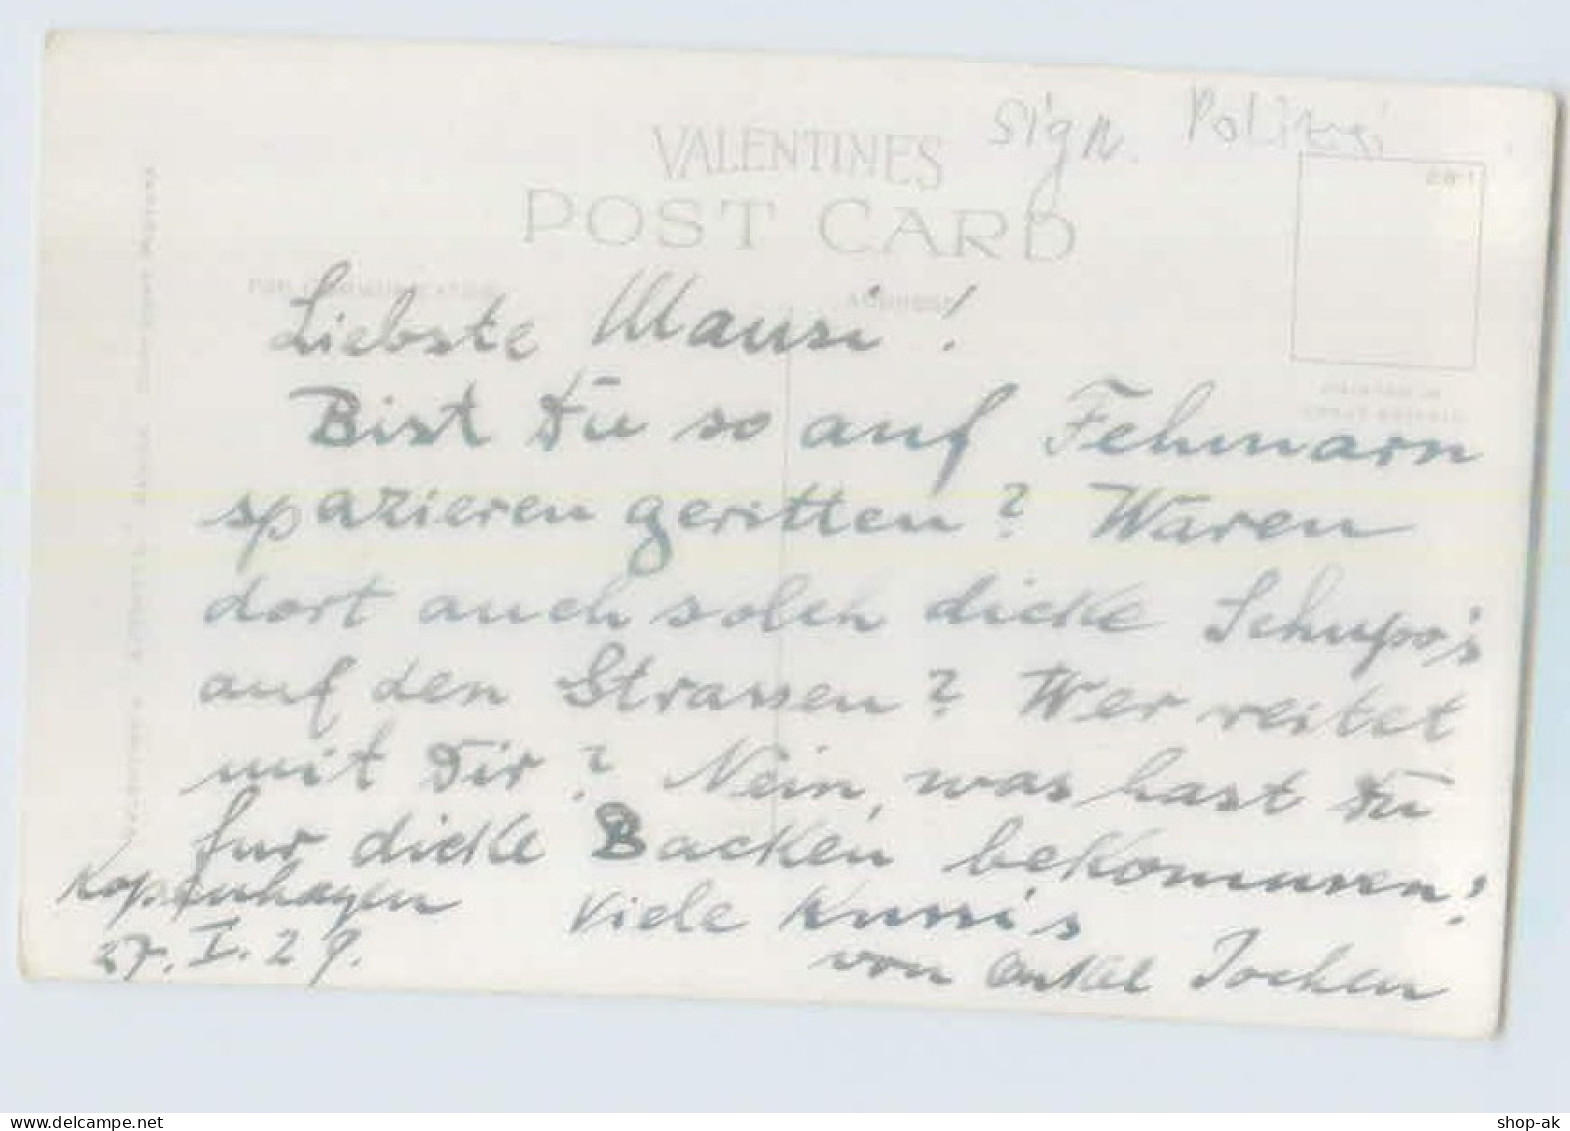 sign. Polizei
VALENTINES
POST CARD
FOR COMMUNICATION
ADDRESS
Liebste Mausi!
Bist Du so auf Fehmarn
spazieren geritten? Waren
dort auch solch dicke Schupo's
auf den Strassen? Wer reitet
mit Dir? Nein, was hast Du
fur dicke Backen bekommen!
Kopenhagen
27. I. 29.
Viele Kussi's
von Onkel Jochen
shop-ak.com